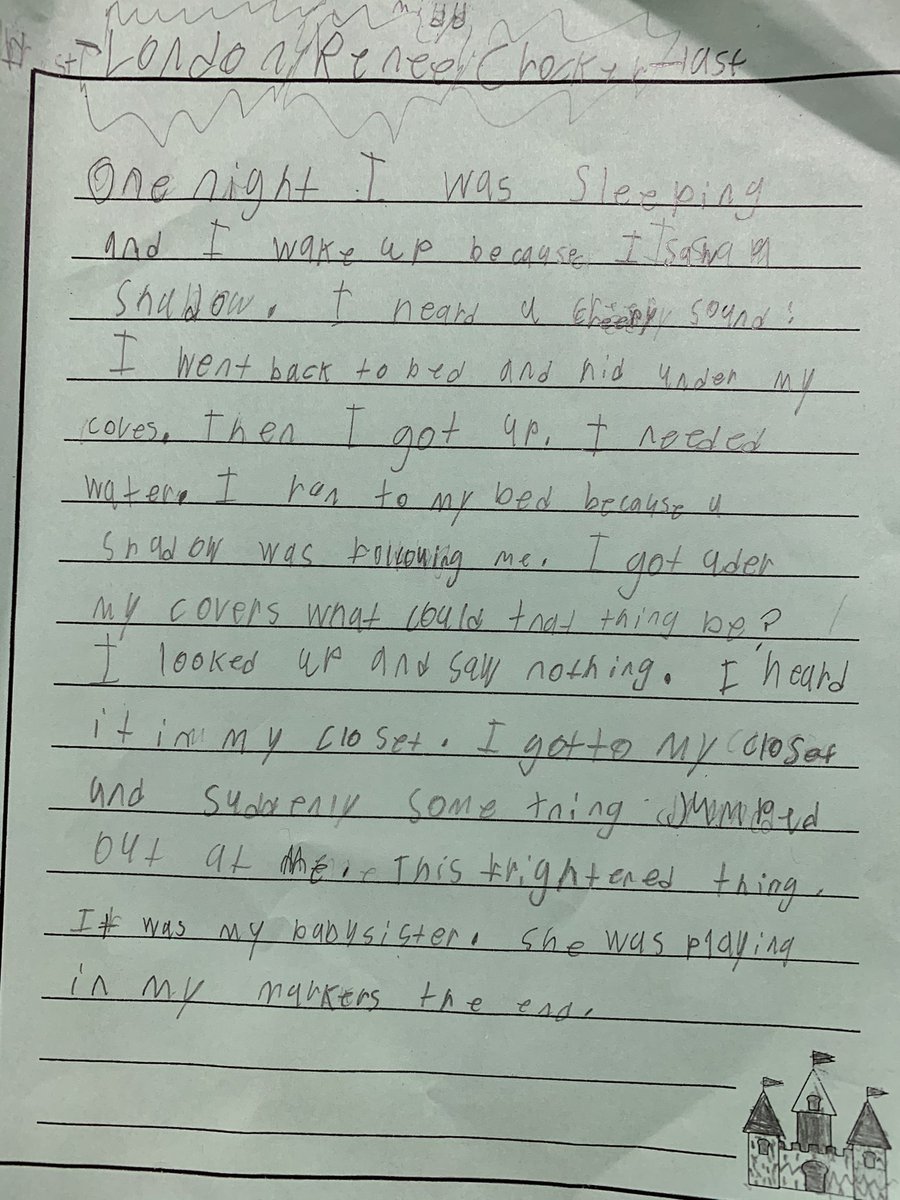 London Renee Crocker last
One night I was Sleeping
and I wake up because I saw a
Shadow. I heard a creepy sound.
I went back to bed and hid under my
coves. Then I got up. I needed
water. I ran to my bed because a
shadow was following me. I got uder
my covers what could that thing be?
I looked up and saw nothing. I heard
it in my closet. I got to my closet
and suddenly some thing jumped
out at me. This frightened thing.
It was my babysister. She was playing
in my markers the end.